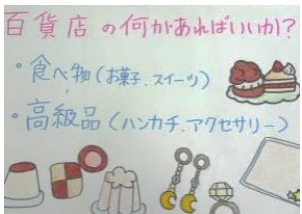 百貨店の何があればいいか?
・食べ物(お菓子、スイーツ)
・高級品(ハンカチ、アクセサリー)